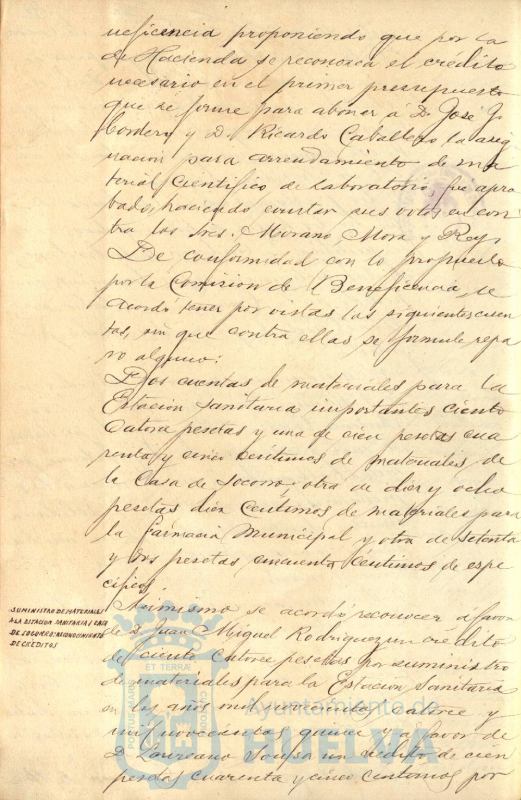 neficencia proponiendo que por la
de Hacienda se reconozca el crédito
necesario en el primer presupuesto
que se forme para abonar á D. José
Cordero y D. Ricardo Caballero la asig
nacion para arrendamiento de ma
terial científico de Laboratorio, fué apro
bado, haciendo constar sus votos en con
tra los Sres. Morano, Mora y Rey.
De conformidad con lo propuesto
por la Comision de Beneficencia, se
acordó tener por vistas las siguientes cuen
tas, sin que contra ellas se formule repa
ro alguno:
Dos cuentas de materiales para la
Estacion Sanitaria importantes ciento
catorce pesetas y una de cien pesetas cua
renta y cinco centimos de materiales de
la Casa de Socorro; otra de diez y ocho
pesetas diez centimos de materiales para
la Farmacia Municipal y otra de setenta
y dos pesetas cincuenta centimos de espe
cificos.
SUMINISTRO DE MATERIALES
A LA ESTACION SANITARIA Y CASA
DE SOCORRO: RECONOCIMIENTO
DE CRÉDITOS
Asimismo se acordó reconocer á favor
de D. Juan Miguel Rodriguez un credito
de ciento catorce pesetas por suministro
de materiales para la Estacion Sanitaria
en los años mil novecientos catorce y
mil novecientos quince y á favor de
D. Laureano Sousa un credito de cien
pesetas cuarenta y cinco centimos por
PORTUS MARIS
ET TERRÆ
CUSTODIA
Ayuntamiento de
HUELVA